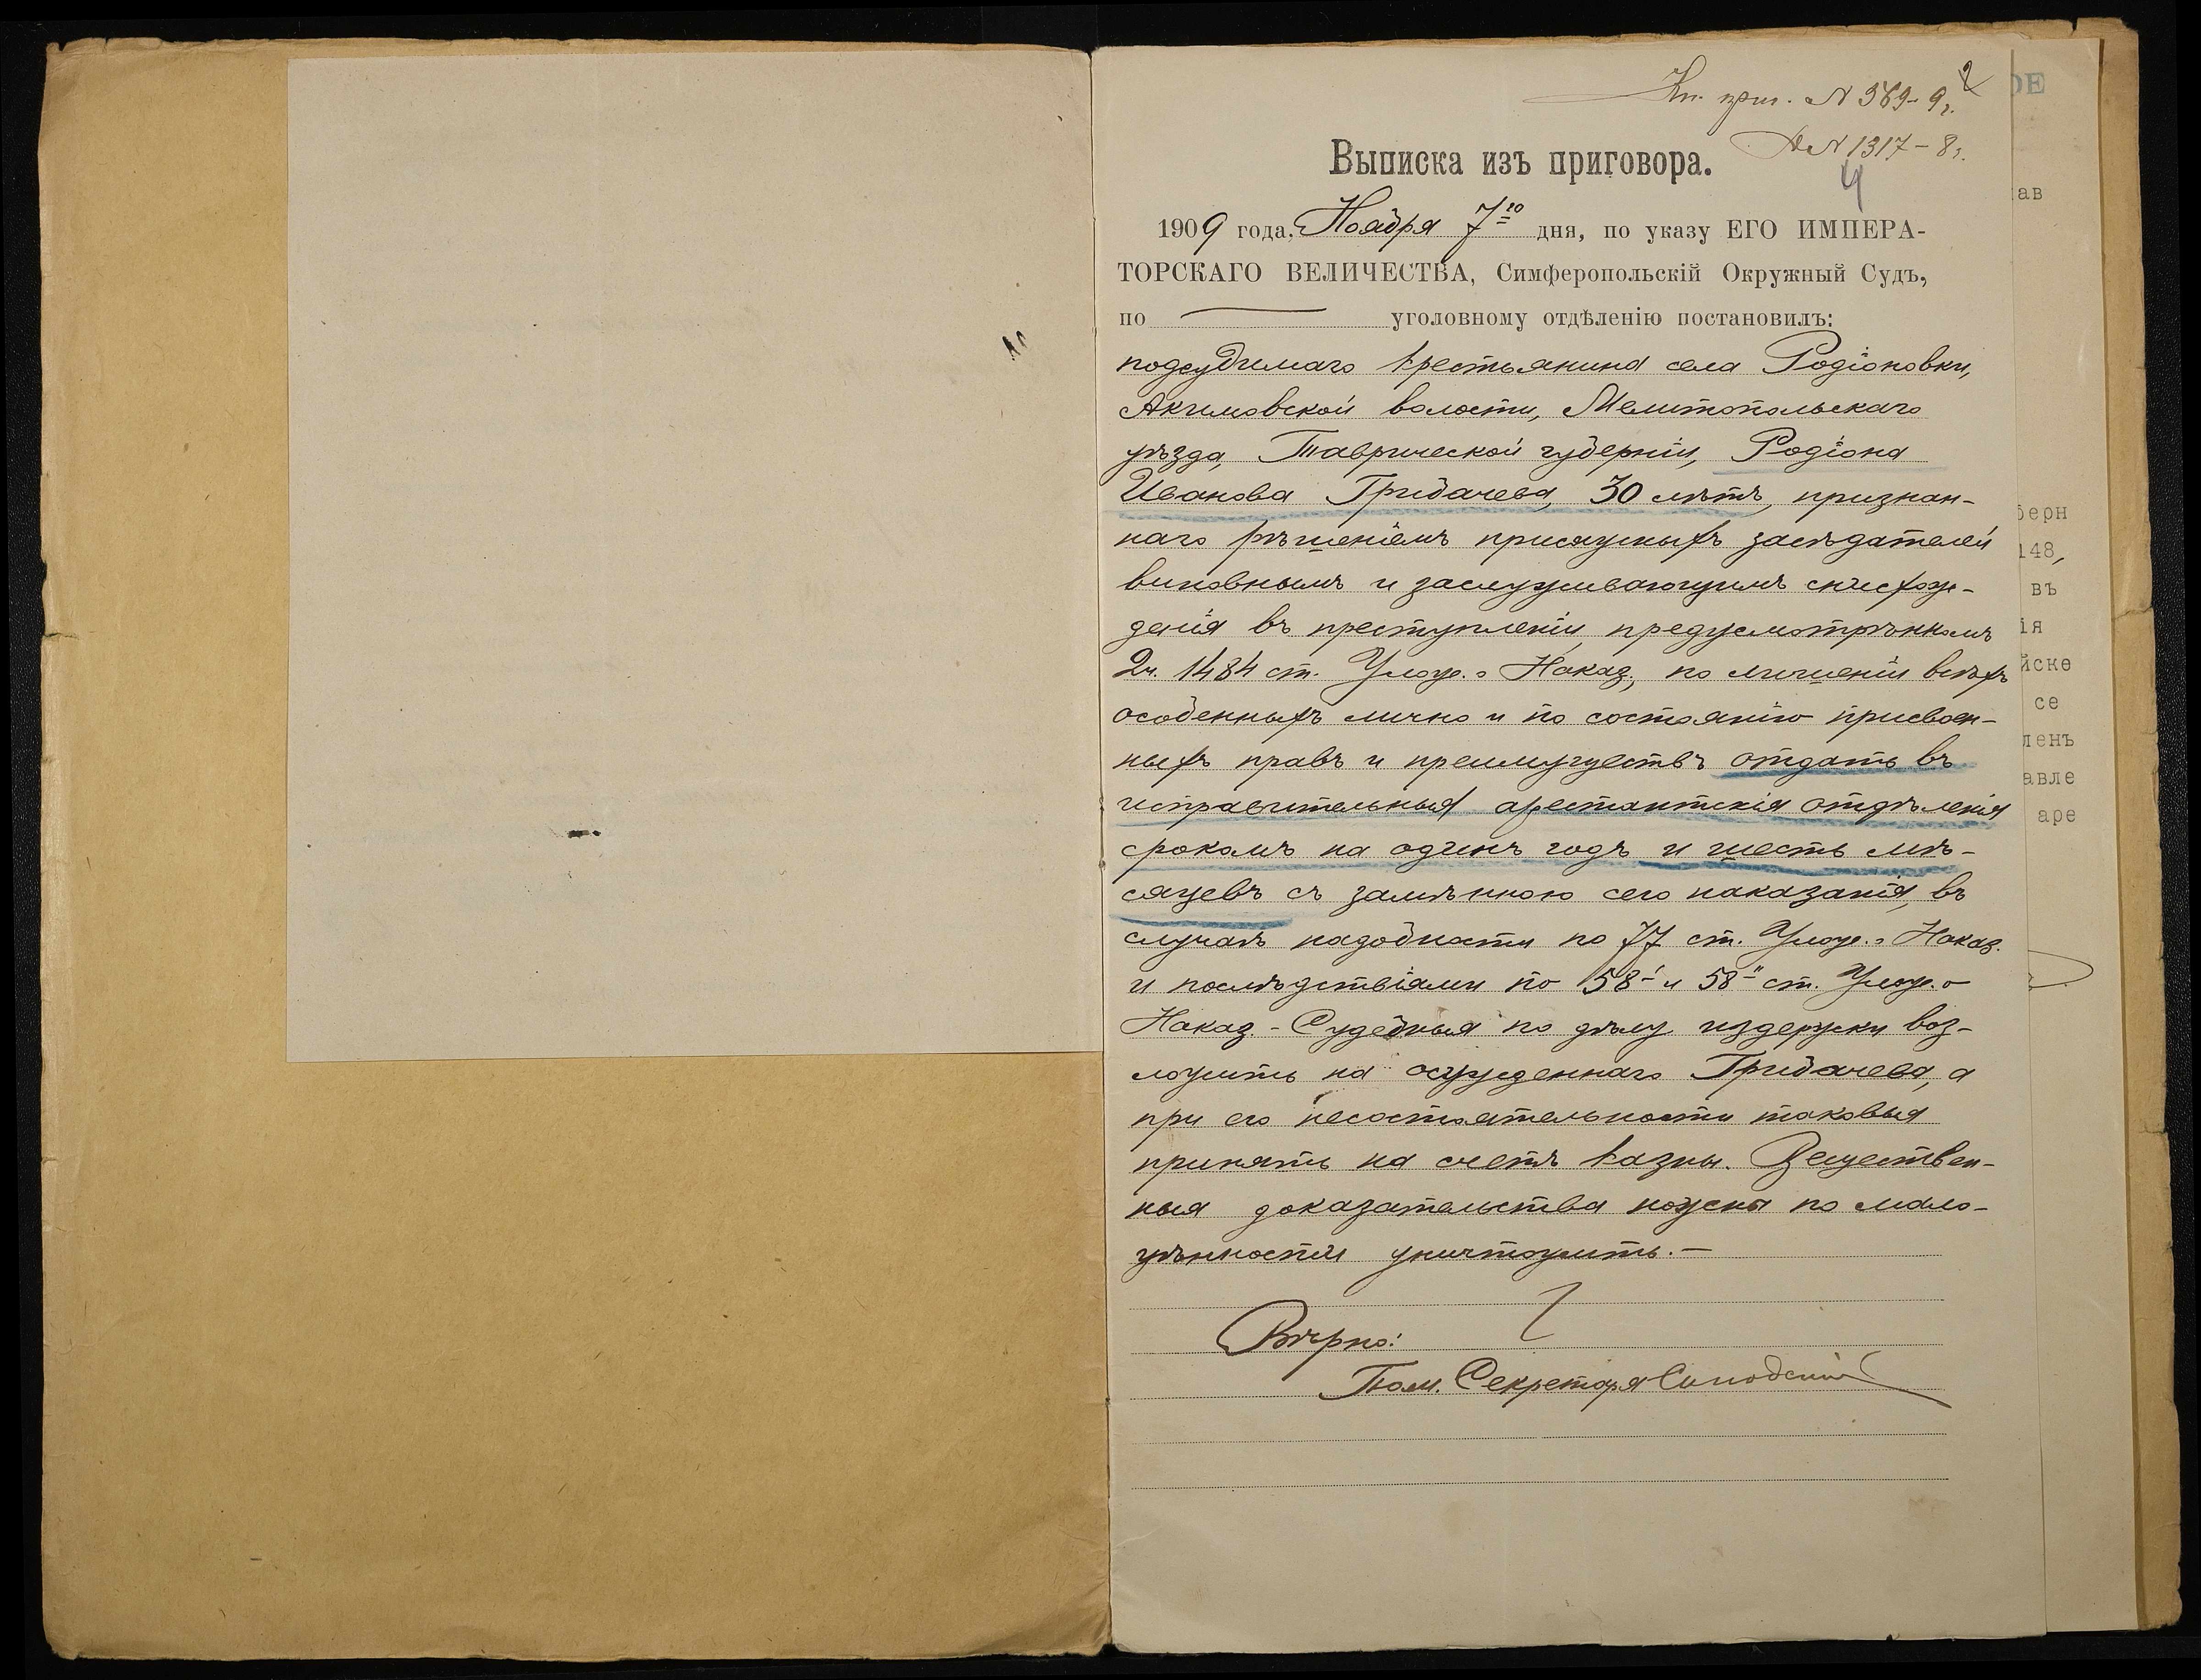 Кн. приг. N 369-9 г.
2
Д N 1317-8 г.
Выписка изъ приговора.
4
1909 года, Ноября 7го дня, по указу ЕГО ИМПЕРА-
ТОРСКАГО ВЕЛИЧЕСТВА, Симферопольскій Окружный Судъ,
по уголовному отдѣленію постановилъ:
подсудимаго крестьянина села Родіоновки,
Акимовской волости, Мелитопольскаго
уѣзда, Таврической губерніи, Родіона
Иванова Грибачева, 30 лѣтъ, признан-
наго рѣшеніемъ присяжныхъ засѣдателей
виновнымъ и заслуживающимъ снисхож-
денія въ преступленіи, предусмотрѣнномъ
2 ч. 1484 ст. Улож. о Наказ., по лишеніи всѣхъ
особенныхъ лично и по состоянію присвоен-
ныхъ правъ и преимуществъ отдать въ
исправительныя арестантскія отдѣленія
срокомъ на одинъ годъ и шесть мѣ-
сяцевъ съ замѣнною сего наказанія, въ
случаѣ надобности по 77 ст. Улож. о Наказ.
и послѣдствіями по 58-I и 58-II ст. Улож. о
Наказ. - Судебныя по дѣлу издержки воз-
ложить на осужденнаго Грибачева, а
при его несостоятельности таковыя
принять на счетъ казны. Вещественн-
ыя доказательства ножны по мало-
цѣнности уничтожить. —
Вѣрно:
Пом. Секретаря
ОЕ
ав
берн
148,
въ
ія
йске
се
ленъ
авле
аре